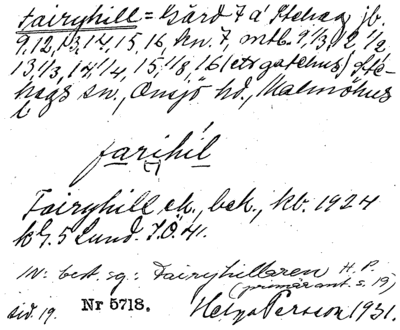 Fairyhill = Gård 7 á Stehag jb.
9, 12, 13, 14, 15, 16 Nn. 7, mtl. 9, 1/3, 12 1/2
13 1/3, 14 1/4, 15 1/8, 16 (ett gatehus) Ste-
hags sn., Onsjö hd., Malmöhus
l
farihíl
Fairyhill ek., bek., kb. 1924
kG. 5 Lund. I.Ö. 41.
N: best. sg.: Fairyhillaren H. P.
(primär ant. s. 19)
sid. 19. Nr 5718. Helga Persson 1931.